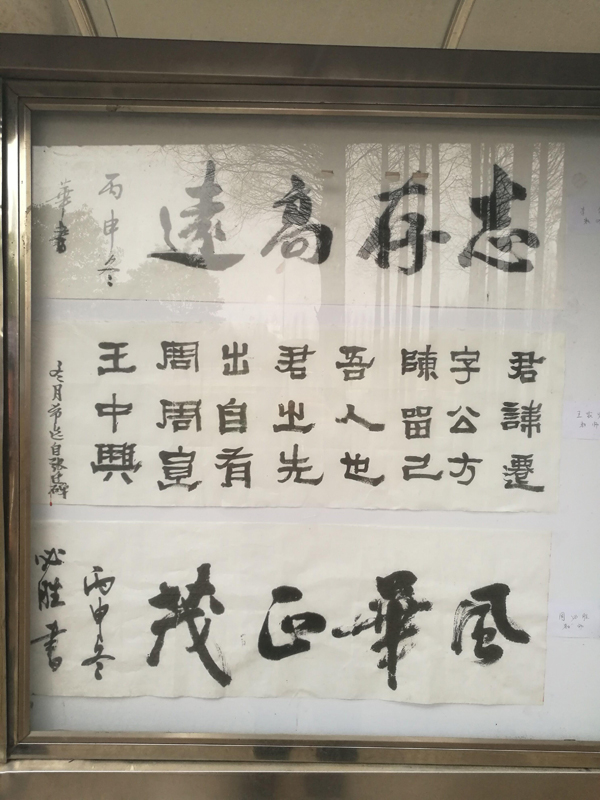 志存高遠
丙申冬
華書
君諱遷
字公方
陳留己
吾人也
君之先
出自有
周周宣
王中興
風華正茂
丙申冬
必胜書